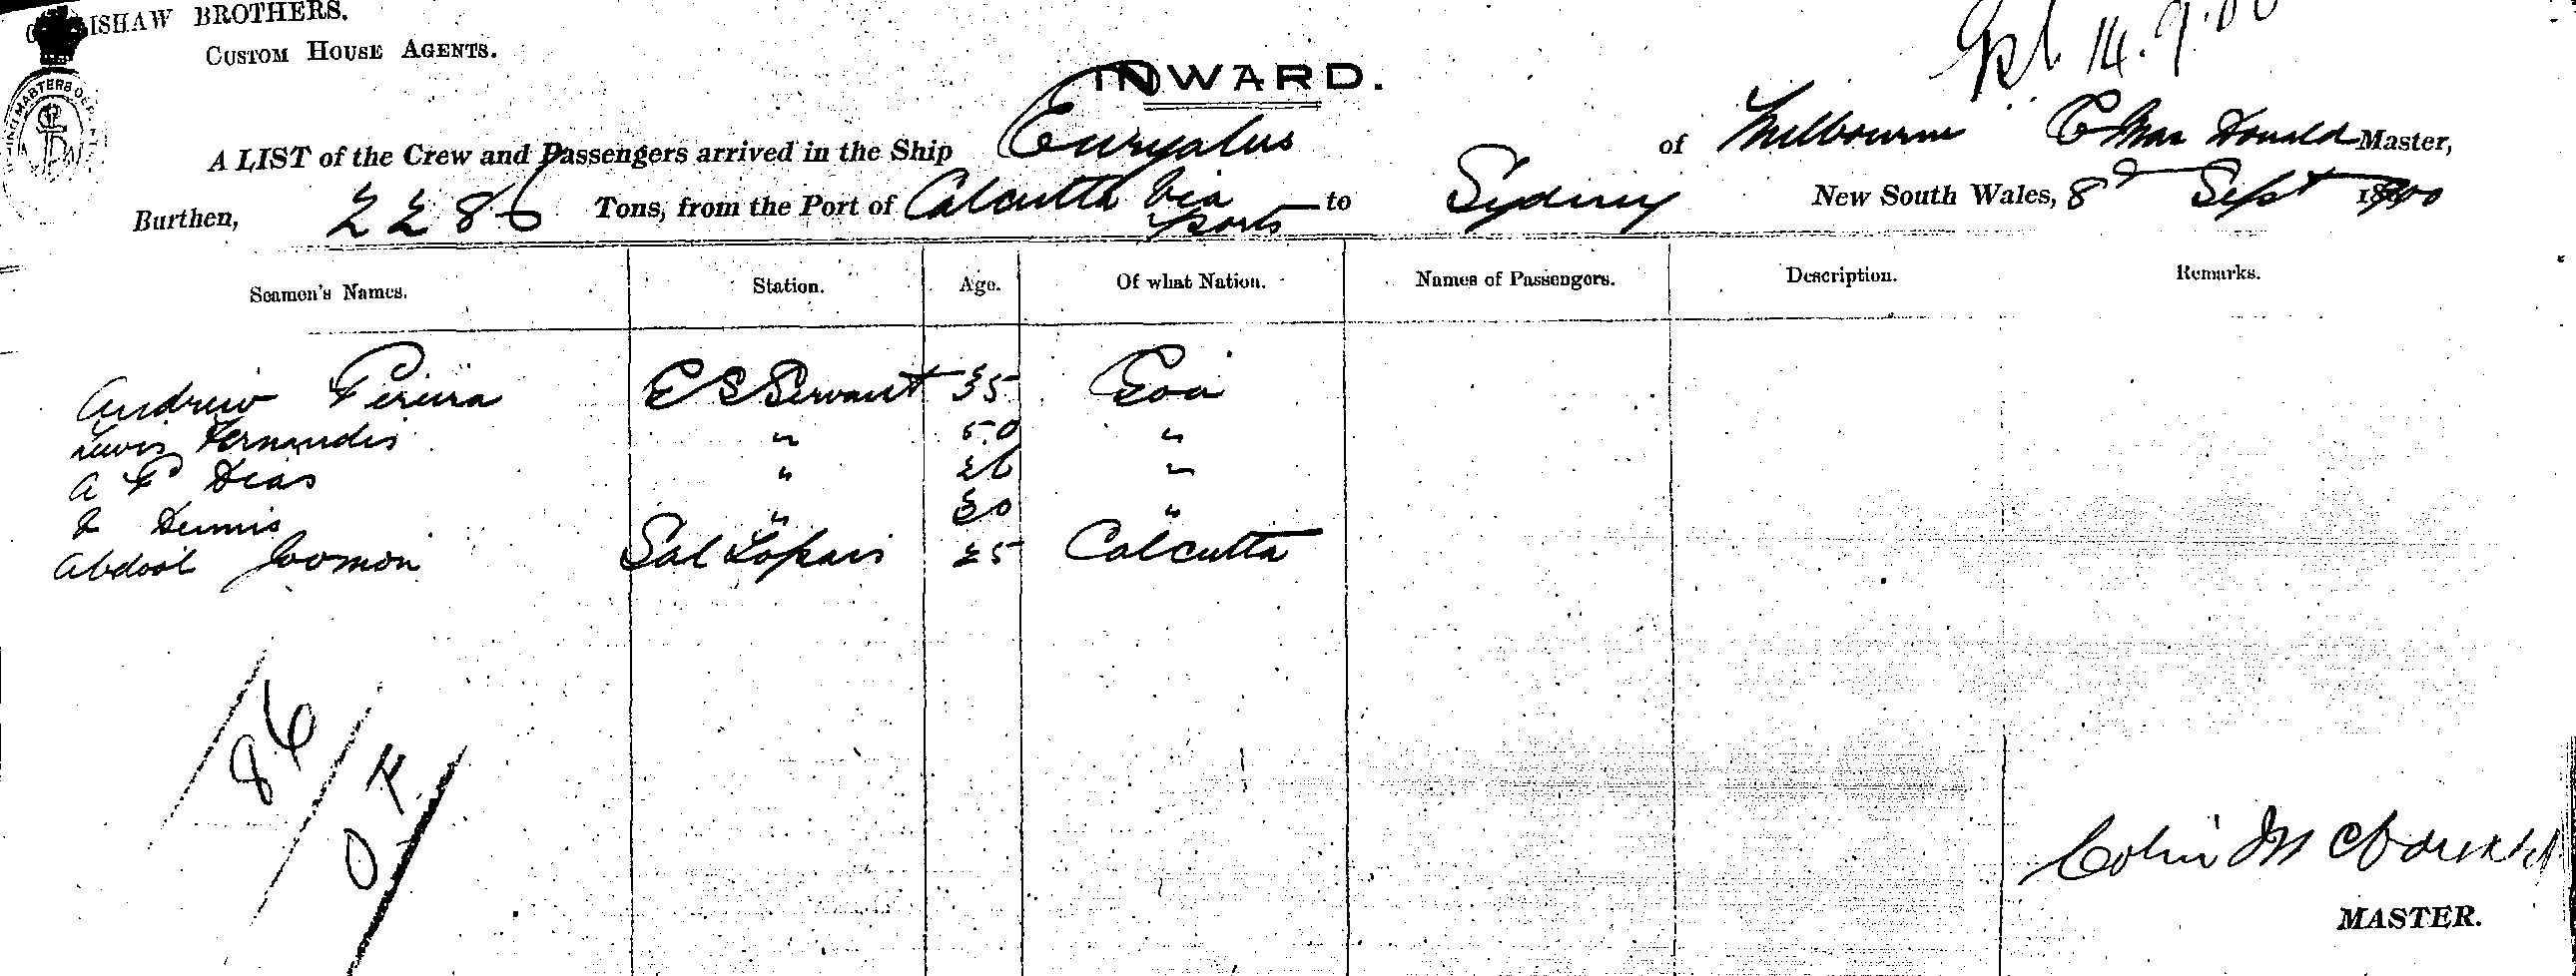 ISHAW BROTHERS.
CUSTOM HOUSE AGENTS.
14.9.00
INWARD.
A LIST of the Crew and Passengers arrived in the Ship Euryalus of Melbourne C Mac Donald Master,
Burthen, 2286 Tons, from the Port of Calcutta via ports to Sydney New South Wales, 8th Sept 1900
Seamen's Names. Station. Age. Of what Nation. Names of Passengers. Description. Remarks.
Andrew Pereira E S Servant 35 Goa
Lewis Fernandis " 50 "
A F Dias " 26 "
Dennis " 30 "
Abdool Joomon Sal Topas 25 Calcutta
86
OK
Colin McDonald
MASTER.